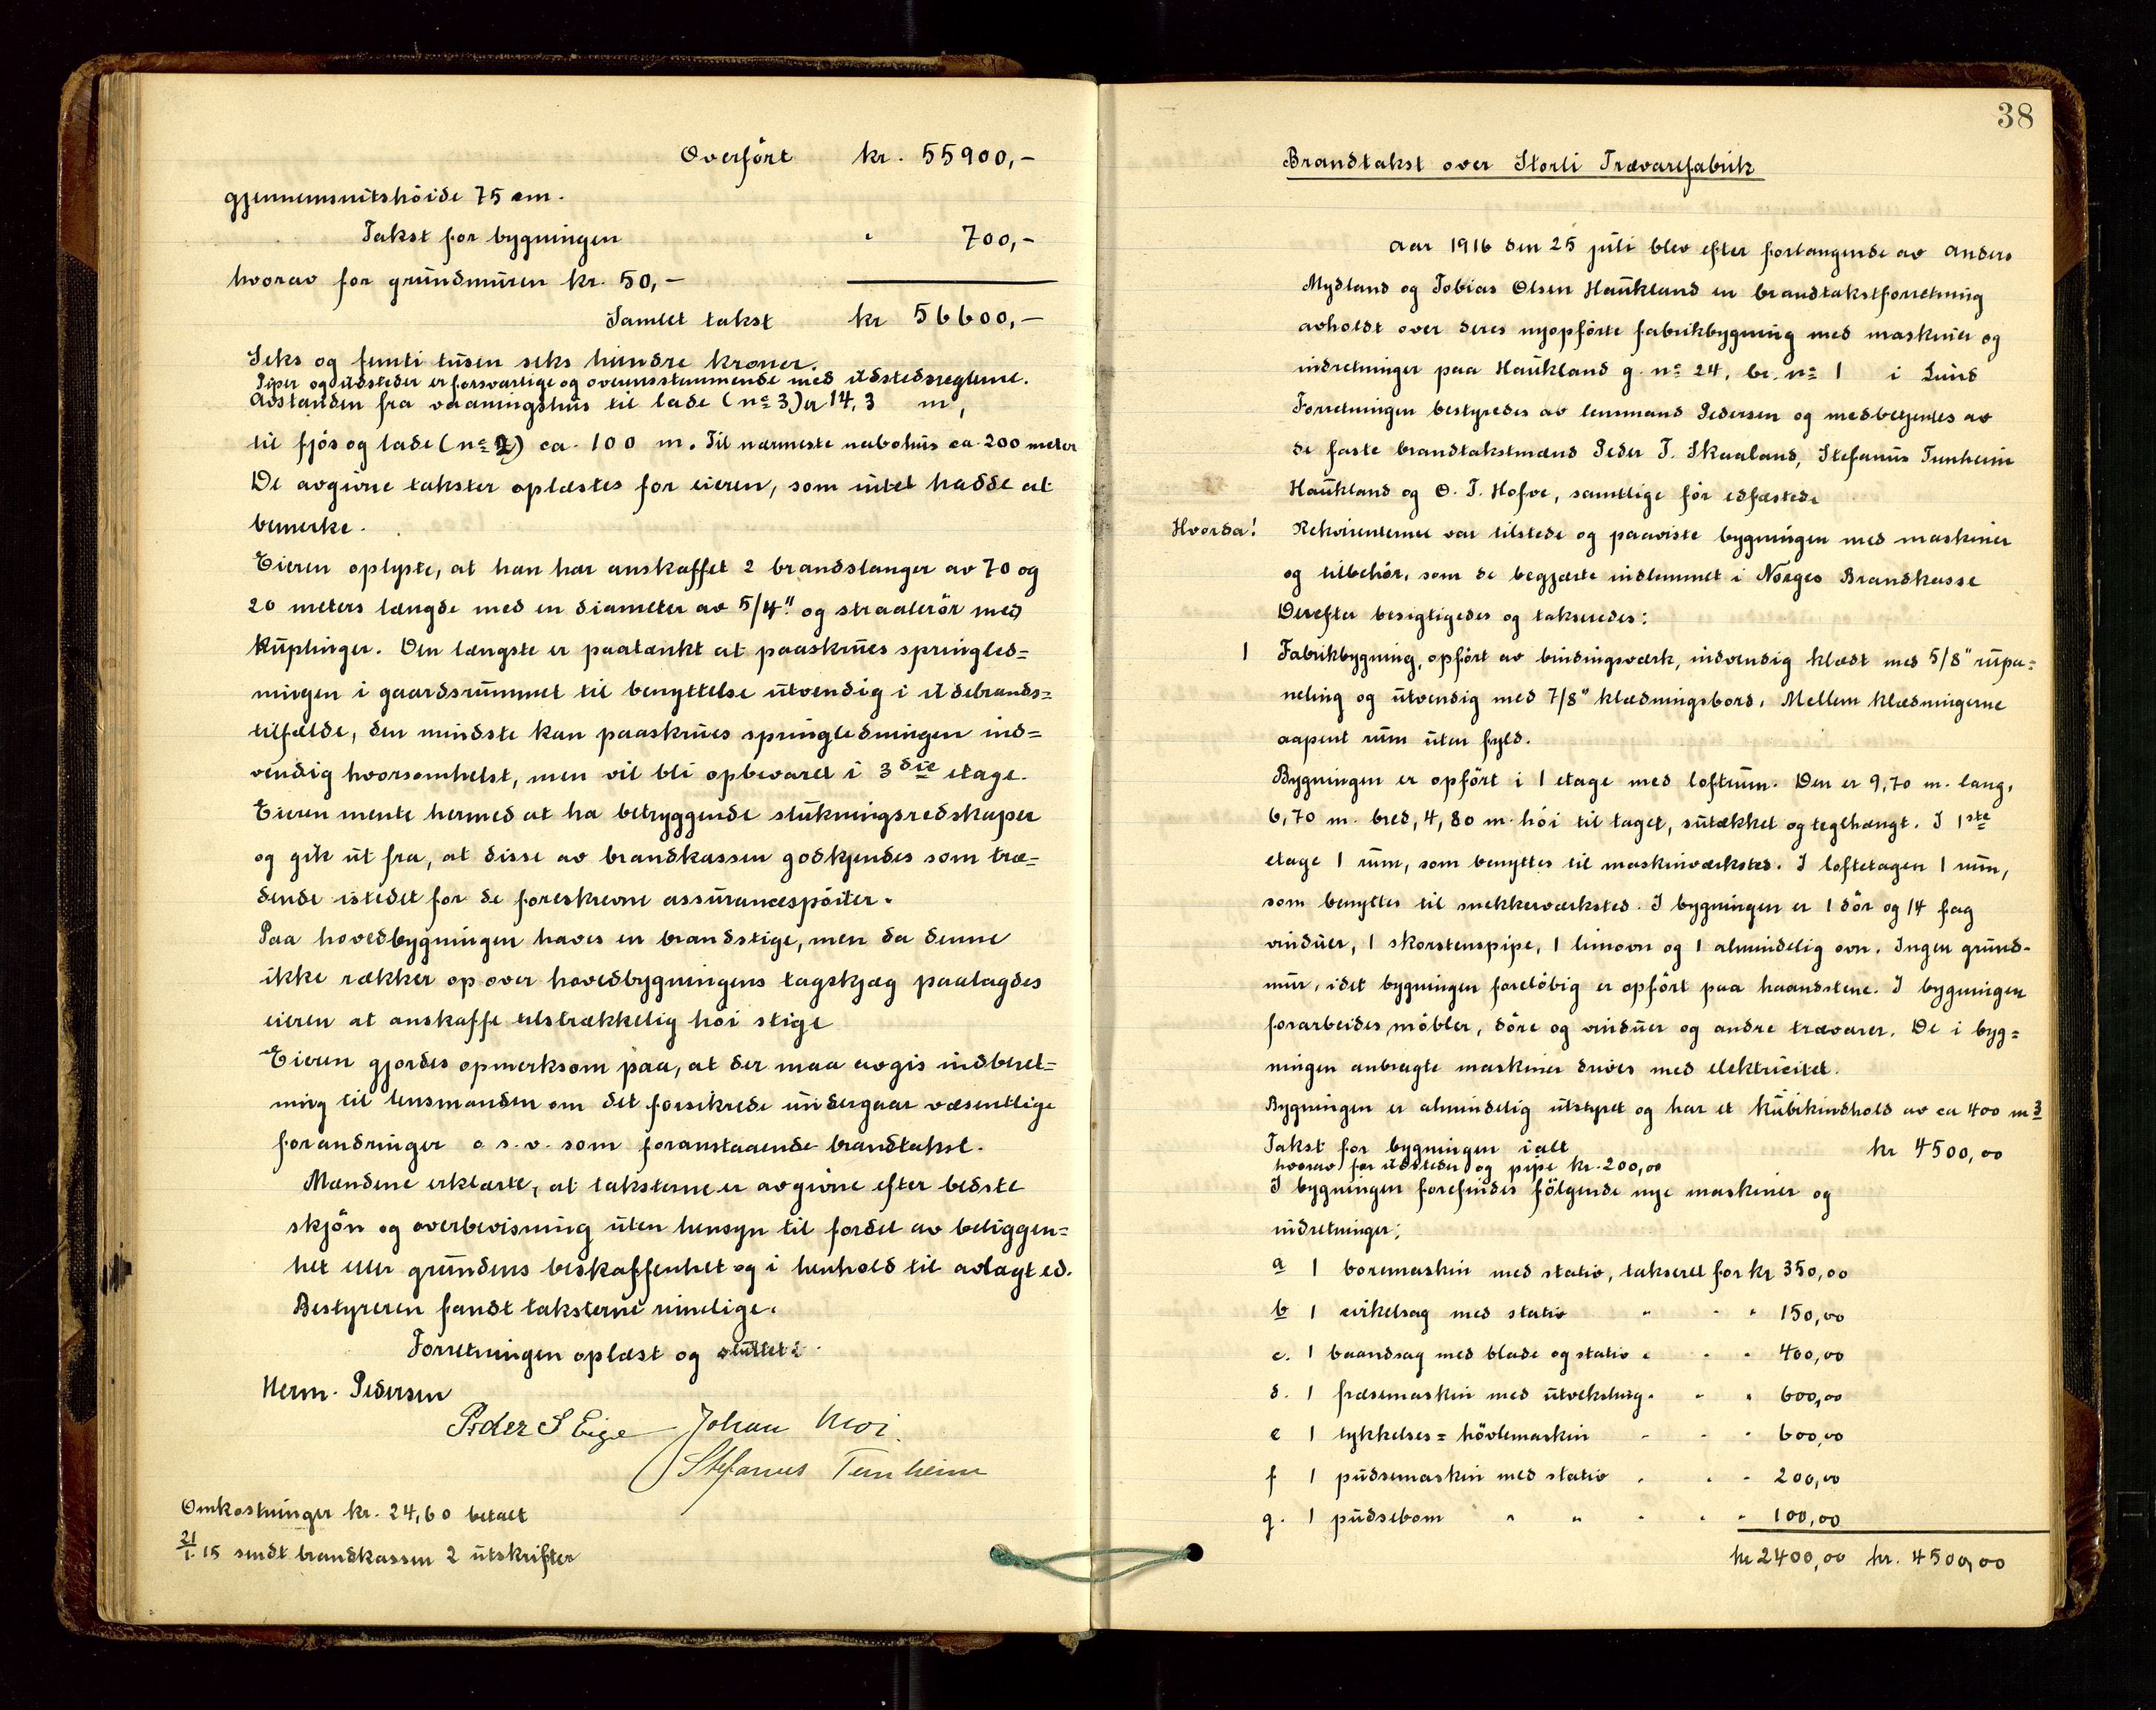 Overført kr. 55900,-
gjennemsnitshøide 75 cm.
Takst for bygningen " 700,-
hvorav for grundmuren kr. 50,-
Samlet takst kr 56600,-
Seks og femti tusen seks hundre kroner.
Piper og ildsteder er forsvarlige og overensstemmende med ildstedsreglerne.
Avstanden fra vaaningshus til lade (no 3) er 14,3 m,
til fjøs og lade (no 2) ca. 100 m. Til nærmeste nabohus ca. 200 meter
De avgivne takster oplæstes for eieren, som intet hadde at
bemerke.
Eieren oplyste, at han har anskaffet 2 brandslanger av 70 og
20 meters længde med en diameter av 5/4" og straalerør med
kuplinger. Den længste er paatænkt at paaskrues springled=
ningen i gaardsrummet til benyttelse utvendig i ildebrands=
tilfælde, den mindste kan paaskrues springledningen ind=
vendig hvorsomhelst, men vil bli opbevaret i 3die etage.
Eieren mente hermed at ha betryggende slukningsredskaper
og gik ut fra, at disse av brandkassen godkjendes som træ=
dende istedet for de foreskrevne assurancespøiter.
Paa hovedbygningen haves en brandstige, men da denne
ikke rækker op over hovedbygningens tagskjæg paalagdes
eieren at anskaffe tilstrækkelig høi stige
Eieren gjordes opmerksom paa, at der maa avgis indberet=
ning til lensmanden om det forsikrede undergaar væsentlige
forandringer o s. v. som foranstaaende brandtakst.
Mændene erklærte, at taksterne er avgivne efter bedste
skjøn og overbevisning uten hensyn til fordel av beliggen=
het eller grundens beskaffenhet og i henhold til avlagt ed.
Bestyreren fandt taksterne rimelige.
Forretningen oplæst og sluttet.
Herm. Pedersen
Peder S Eige Johan Moi.
Stefanus Tunheim
Omkostninger kr. 24,60 betalt
21/1. 15 sendt brandkassen 2 utskrifter
38
Brandtakst over Storli Trævarefabrik
Aar 1916 den 25 juli blev efter forlangende av Anders
Mydland og Tobias Olsen Haukland en brandtakstforretning
avholdt over deres nyopførte fabrikbygning med maskiner og
indretninger paa Haukland g. no 24, br. no 1 i Lund
Forretningen bestyredes av lensmand Pedersen og medbetjentes av
de faste brandtakstmænd Peder T. Skaaland, Stefanus Tunheim
Haukland og O. T. Hofve, samtlige før edfæstede
Hvorda! Rekvirenterne var tilstede og paaviste bygningen med maskiner
og tilbehør, som de begjærte indlemmet i Norges Brandkasse
Derefter besigtigedes og takseredes:
1 Fabrikbygning, opført av bindingsværk, indvendig klædt med 5/8" rupa=
neling og utvendig med 7/8" klædningsbord. Mellem klædningerne
aapent rum uten fyld.
Bygningen er opført i 1 etage med loftrum. Den er 9,70 m. lang,
6,70 m. bred, 4,80 m. høi til taget, sutækket og teglhængt. I 1ste
etage 1 rum, som benyttes til maskinværksted. I loftetagen 1 rum,
som benyttes til snekkerværksted. I bygningen er 1 dør og 14 fag
vinduer, 1 skorstenspipe, 1 limovn og 1 almindelig ovn. Ingen grund-
mur, idet bygningen foreløbig er opført paa haandstene. I bygningen
forarbeides møbler, døre og vinduer og andre trævarer. De i byg=
ningen anbragte maskiner drives med elektricitet.
Bygningen er almindelig utstyret og har et kubikindhold av ca 400 m3
Takst for bygningen ialt kr 4500,00
hvorav for ildsteder og pipe kr. 200,00
I bygningen forefindes følgende nye maskiner og
indretninger:
a 1 boremaskin med stativ, takseret for kr 350,00
b 1 cirkelsag med stativ " " " 150,00
c. 1 baandsag med blade og stativ " " " 400,00
d. 1 fræsemaskin med utveksling " " " 600,00
e 1 tykkelses=høvlemaskin " " " 600,00
f 1 pudsemaskin med stativ " " " 200,00
g. 1 pudsebom " " " " " 100,00
kr 2400,00 kr. 4500,00